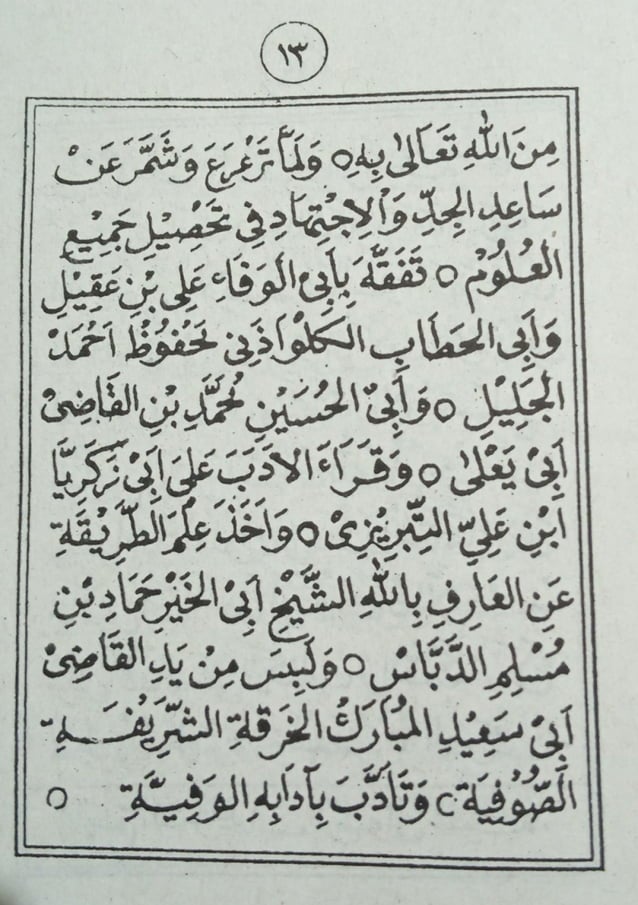 ١٣
مِنَ اللّٰهِ تَعَالٰى بِهِ ○ وَلَمَّا تَرَعْرَعَ وَشَمَّرَ عَنْ
سَاعِدِ الْجِدِّ وَالْاِجْتِهَادِ فِي تَحْصِيْلِ جَمِيْعِ
الْعُلُوْمْ ○ تَفَقَّهَ بِاَبِى الْوَفَاءِ عَلِى بْنِ عَقِيْلِ
وَاَبِى الحَطَابِ الكَلْوَاذَنِى مَحْفُوْظُ اَحْمَدْ
الْجَلِيْلِ ○ وَاَبِىْ الحُسَيْنِ مُحَمَّدِ بْنِ القَاضِىْ
اَبِىْ يَعْلٰى ○ وَقَرَاءَ الادَبَ عَلَى اَبِىْ زَكَرِيَّا
ابْنِ عَلِيِّ التِّبْرِيْزِىْ ○ وَاَخَذَ عِلْمَ الطَّرِيْقَةِ
عَنِ العَارِفِ بِاللّٰهِ الشَّيْخِ اَبِىْ الخَيْرِ حَمَادِ بْنِ
مُسْلِمِ الدَّبَّاسْ ○ وَلَبِسَ مِنْ يَدِ القَاضِىْ
اَبِىْ سَعِيْدِ المُبَارَكْ الخَرقَةِ الشَّرِيْفَةِ
الصُّوْفِيَة ○ وَتَاَدَّبَ بِآدَابِهِ الوَفِيَّةِ ○